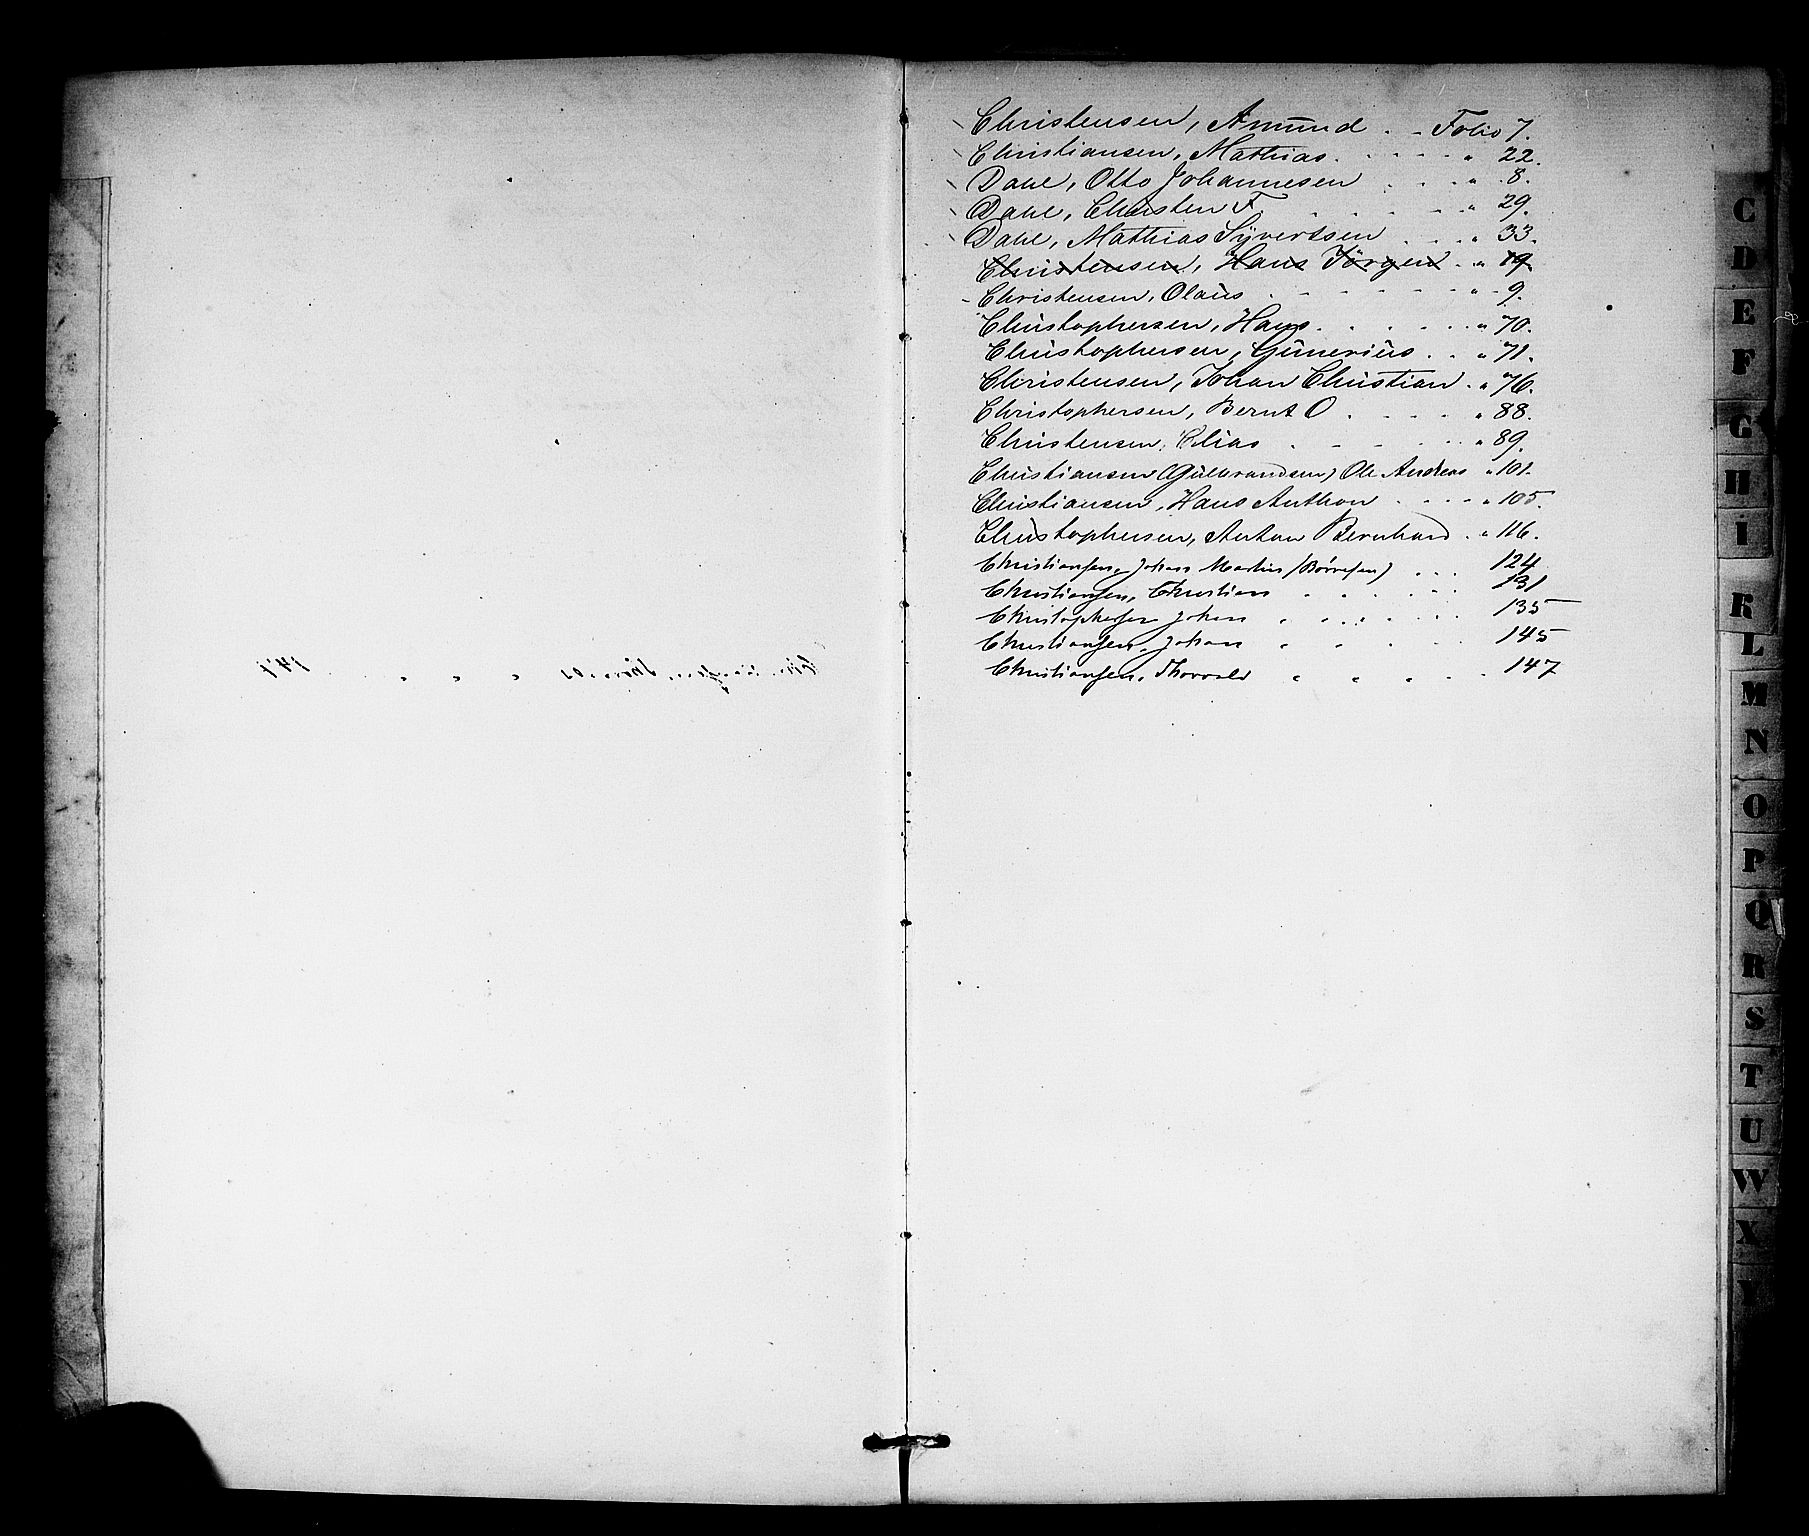 Christensen, Amund . . Folio 7.
Christiansen, Mathias . . . . . " 22.
Dahl, Otto Johannesen . . . . " 8.
Dahl, Christen F. . . . . . " 29.
Dahl, Mathias Syvertsen . . . " 33.
Christensen, Hans Jörgen . . " 19.
Christensen, Olaüs . . . . . . " 9.
Christophersen, Hans . . . . . " 70.
Christophersen, Günerius . . . " 71.
Christensen, Johan Christian . " 76.
Christophersen, Bernt O . . . . " 88.
Christensen, Elias . . . . . " 89.
Christiansen (Gülbrandsen) Ole Andreas " 101.
Christiansen, Hans Anthon . . . . " 105.
Christophersen, Anton Bernhard . . " 116.
Christiansen, Johan Martin (Börresen) . . . 124
Christiansen, Christian . . . . . 131
Christophersen Johan " . . . . 135
Christiansen, Johan " " . . 145
Christiansen, Thorvald " " " . 147
C
D
E
F
G
H
I
K
L
M
N
O
P
Q
R
S
T
U
W
X
Y